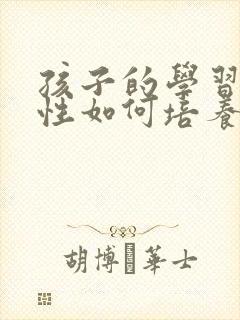 孩子的學習
性如何培養
胡博 華士